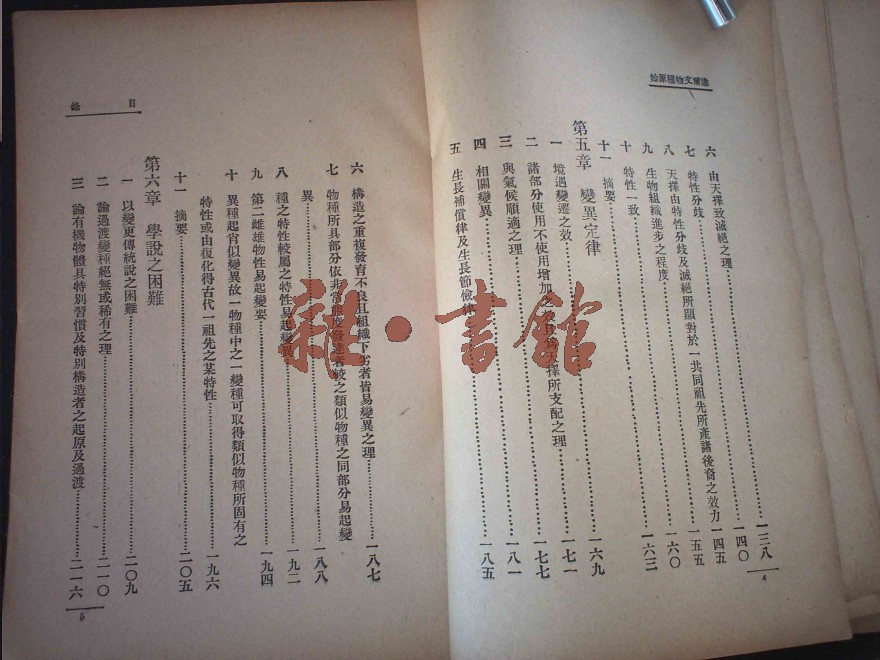 達爾文物種原始
六 由天擇致滅絕之理……一三八
七 特性分歧……一四〇
八 天擇由特性分歧及滅絕所顯對於一共同祖先所產諸後裔之效力 一四五
九 生物組織進步之程度……一五五
十 特性一致……一六〇
十一 摘要……一六三
第五章 變異定律
一 境遇變遷之效……一六九
二 諸部分使用不使用增加之 天擇所支配之理……一七一
三 與氣候順適之理……一七七
四 相關變異……一八一
五 生長補償律及生長節儉律……一八五
4
目錄
六 構造之重複發育不良且組織下劣者皆易變異之理……一八七
七 物種所具部分依非常 發達者較之類似物種之同部分易起變
異……一八八
八 種之特性較屬之特性易起變異……一九二
九 第二雌雄物性易起變要……一九四
十 異種起肖似變異故一物種中之一變種可取得類似物種所固有之
特性或由復化得古代一祖先之某特性……一九六
十一 摘要……二〇五
第六章 學說之困難
一 以變更傳統說之困難……二〇九
二 論過渡變種絕無或稀有之理……二一〇
三 論有機物體具特別習慣及特別構造者之起原及過渡……二一六
5
·書館